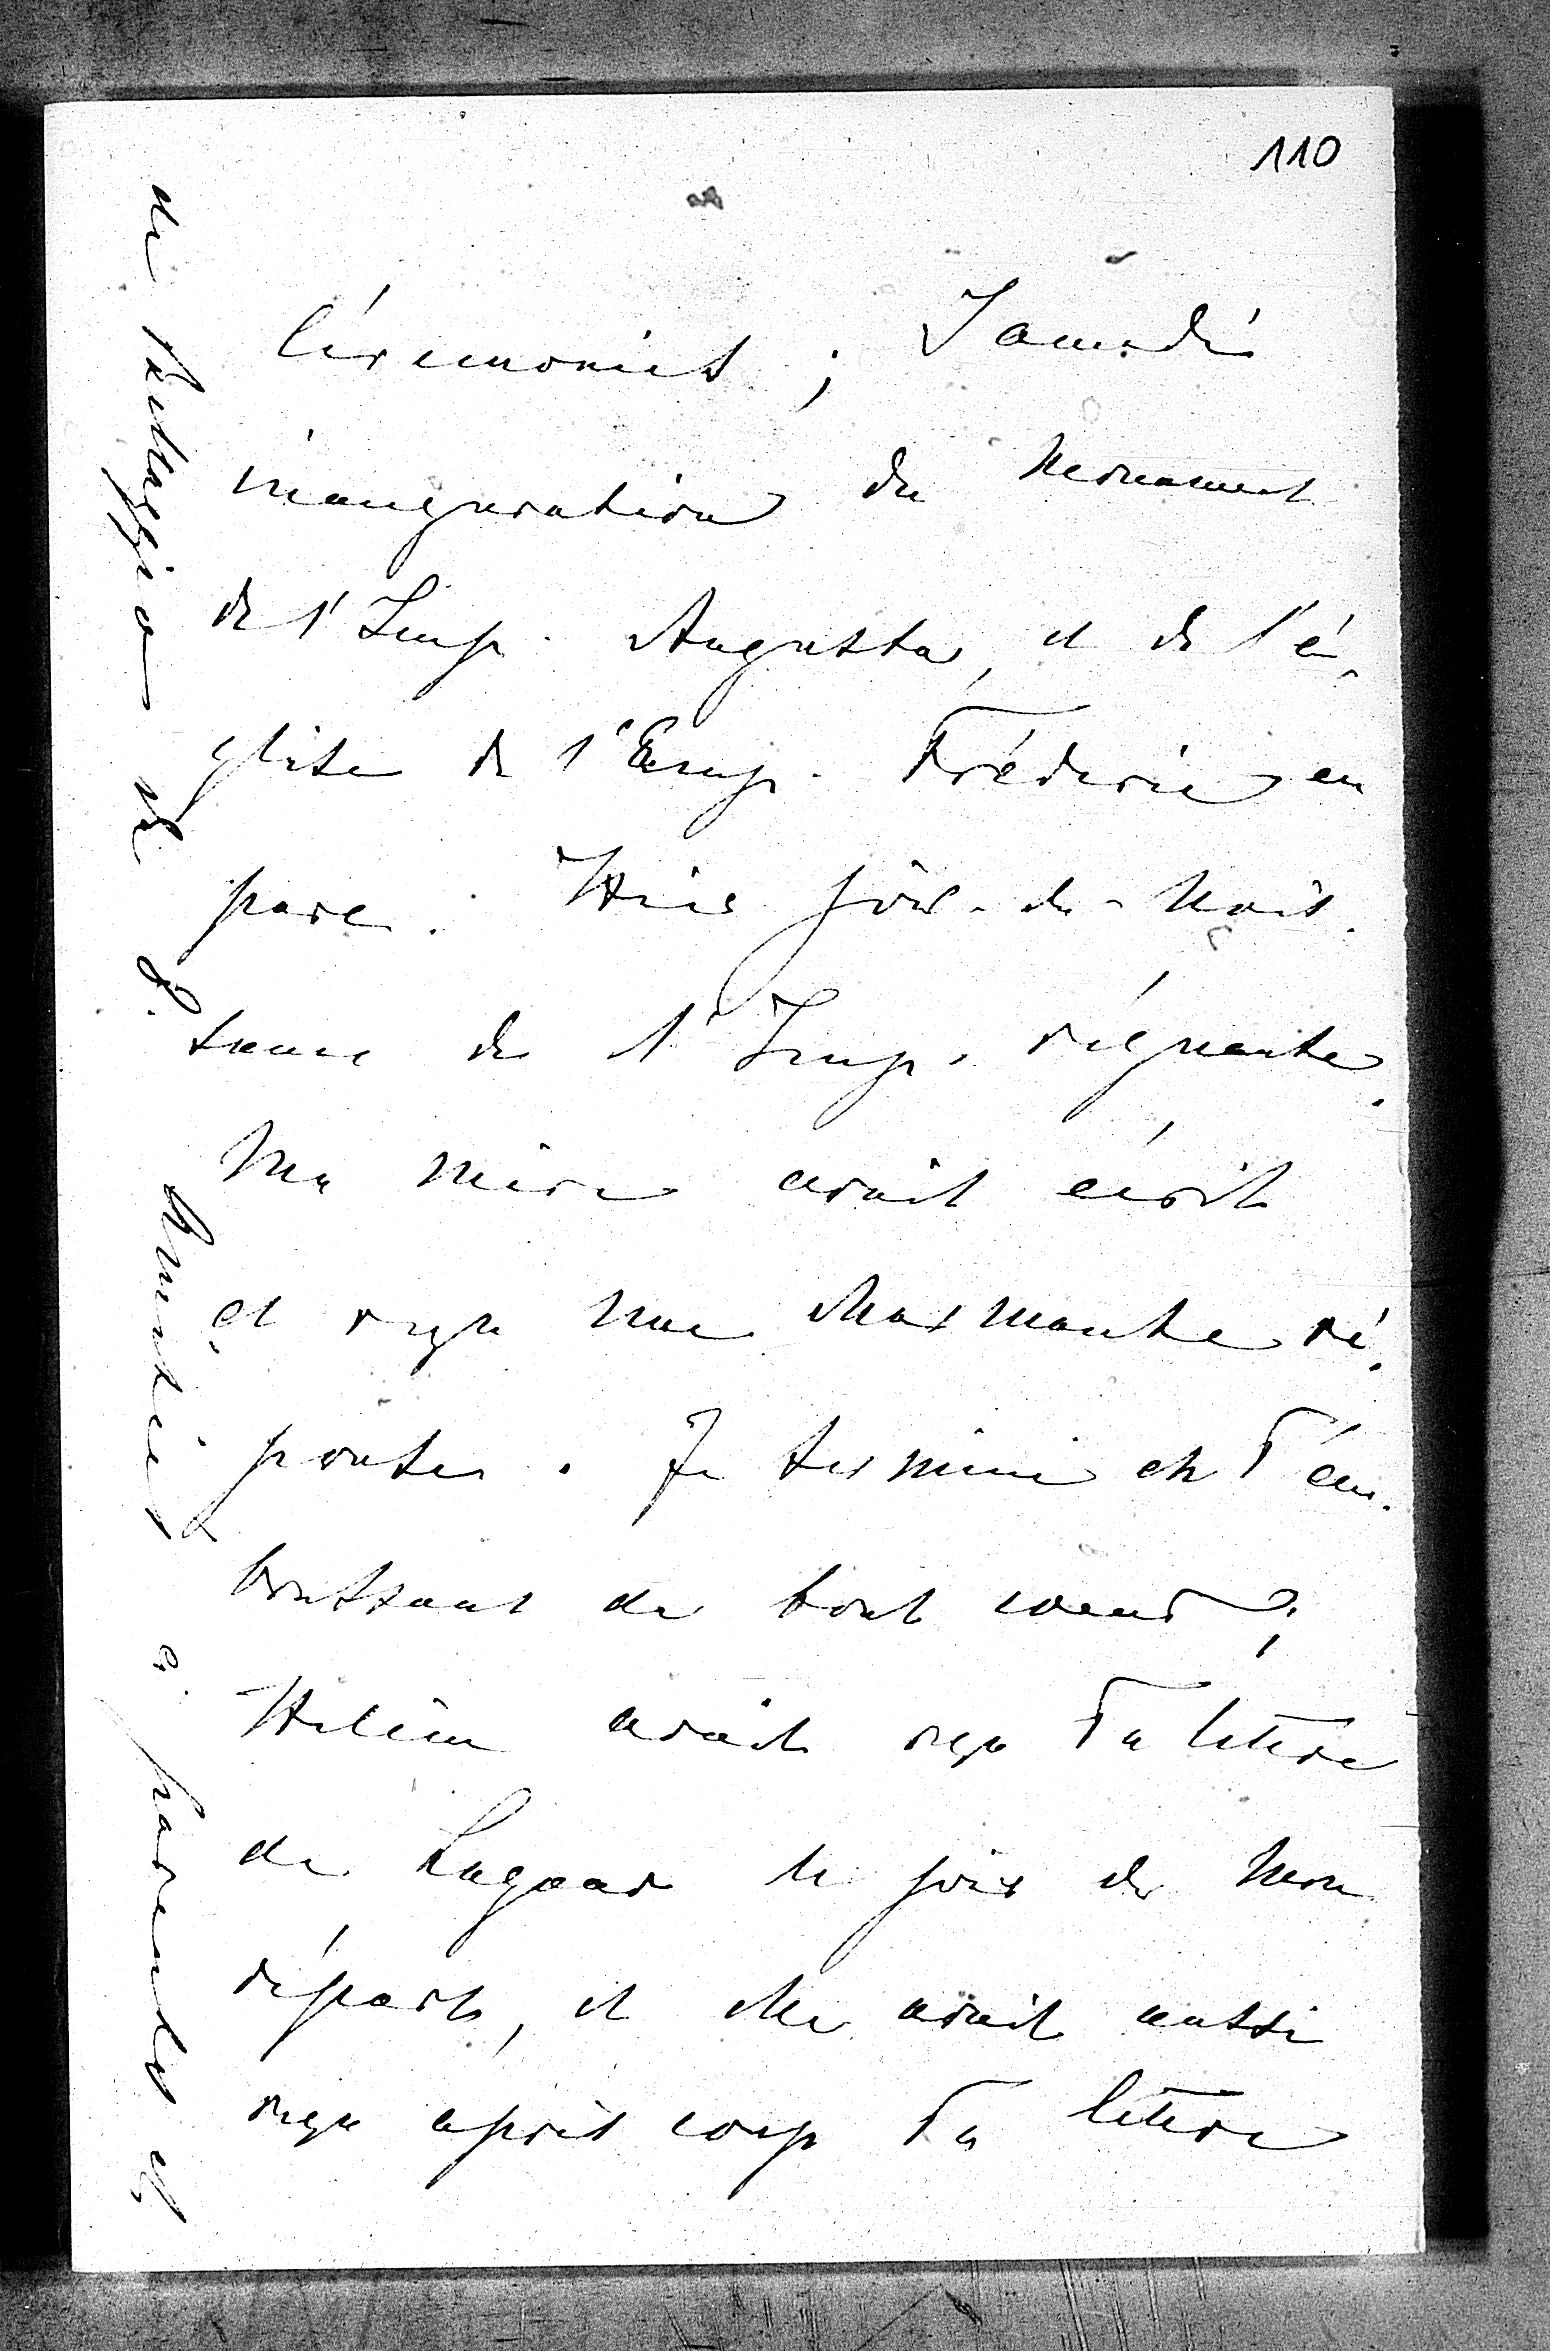 110
Cérémonies ; Samedi
inauguration du Monument
de l'Imp. Augusta, et de l'é-
glise de l'Emp. Fréderic en
parc. Hier jour-de-nais-
sance de l'Imp. régnante.
Ma mère avait écrit
et reçu une charmante ré-
ponse. Je termine en T'em-
brassant de tout coeur ;
Hélène avait reçu Ta lettre
de Lugano le jour de mon
départ, et elle avait aussi
reçu après coup Ta lettre
de Bellaggio
Amitiés à parents et